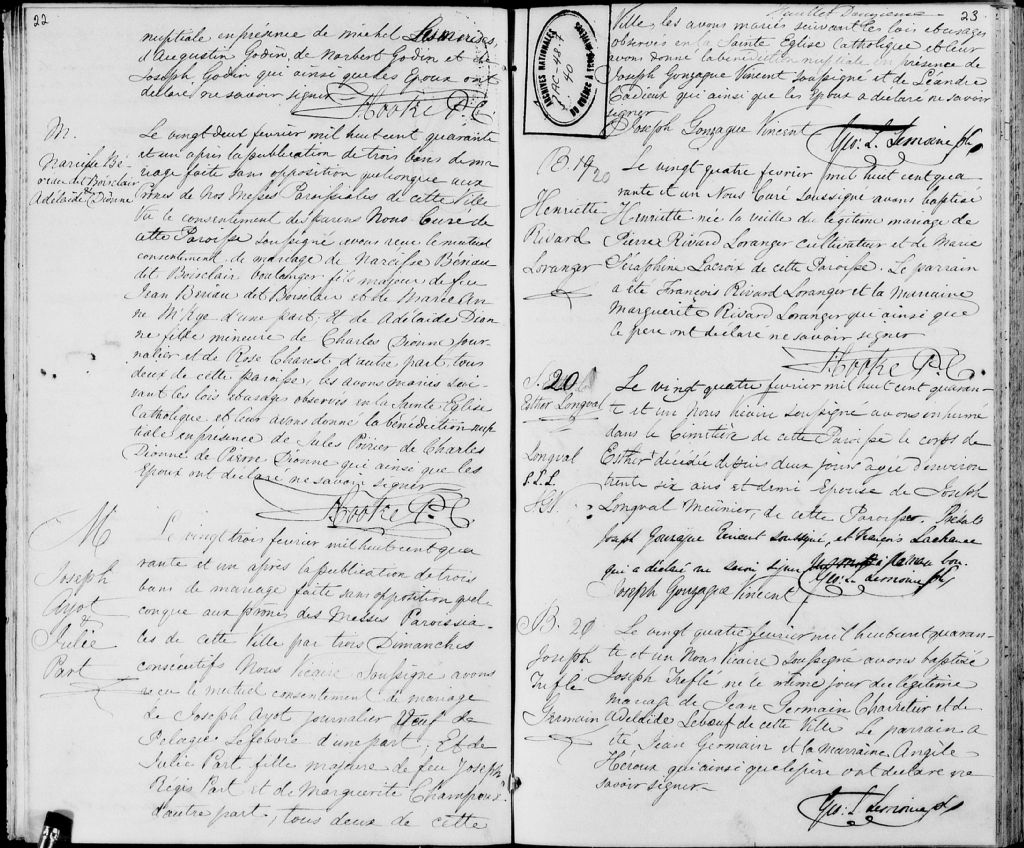 22
nuptiale en présence de michel
d'Augustin Godin, de Norbert Godin et de
Joseph Godin qui ainsi que les Epoux ont
declaré ne savoir signer
Hooke P.C.
M.
Narcisse Bé-
riau dit Boisclair
&
Adelaïde Dionne
Le vingt deux fevrier mil huit cent quarante
et un après la publication de trois bans de ma-
riage faite sans opposition quelconque aux
Prônes de Nos Messes Paroissiales de cette Ville
Vu le consentement des parens Nous Curé de
cette Paroisse soussigné avons reçu le mutuel
consentement de mariage de Narcisse Bériau
dit Boisclair boulanger fils majeur de feu
Jean Bériau dit Boisclair et de Marie An-
ne d'une part; Et de Adélaïde Dion
ne fille mineure de Charles Dionne jour-
nalier et de Rose Charest d'autre part, tous
deux de cette paroisse, les avons mariés sui-
vant les lois et usages observés en la Sainte Eglise
Catholique et leur avons donné la bénédiction nup
tiale en présence de Jules Poirier de Charles
Dionne de Pierre Dionne qui ainsi que les
Epoux ont déclaré ne savoir signer
Hooke P.C.
M
Joseph
Ayot
&
Julie
Part
Le vingt trois fevrier mil huit cent qua
rante et un après la publication de trois
bans de mariage faite sans opposition quel
conque aux prônes des Messes Paroissia-
les de cette Ville par trois Dimanches
consécutifs Nous Vicaire Soussigné avons
reçu le mutuel consentement de mariage
de Joseph Ayot journalier Veuf de
Pelagie Lefebvre d'une part; Et de
Julie Part fille majeure de feu Joseph
Régis Part et de Marguerite Champoux
d'autre part; tous deux de cette
Feuillet Deuxieme
23
ARCHIVES NATIONALES
DU QUÉBEC À TROIS-RIVIÈRES
Ville, les avons mariés suivant les lois et usages
observés en la Sainte Eglise Catholique et leur
avons donné la bénédiction nuptiale en présence de
Joseph Gonzague Vincent soussigné et de Léandre
Cadieux qui ainsi que les Epoux a déclaré ne savoir
signer
Joseph Gonzague Vincent
Geo: L. Lemoine
B. 19
20
Henriette
Rivard
Loranger
Le vingt quatre fevrier mil huit cent qua
rante et un Nous Curé Soussigné avons baptisé
Henriette née la veille du légitime mariage de
Pierre Rivard Loranger cultivateur et de Marie
Séraphine Lacroix de cette Paroisse. Le parrain
a été François Rivard Loranger et la Marraine
Marguerite Rivard Loranger qui ainsi que
le pere ont déclaré ne savoir signer
Hooke P.C.
20
Esther Longval
Longval
Le vingt quatre fevrier mil huit cent quaran-
te et un nous Vicaire soussigné avons inhumé
dans le Cimetière de cette Paroisse le corps de
Esther décédée depuis deux jours agée d'environ
trente six ans et demi Epouse de Joseph
Longval Meunier, de cette Paroisse. Présents
Joseph Gonzague Vincent soussigné, et François Lachance
qui a declaré ne savoir signer
Geo: L. Lemoine
Joseph Gonzague Vincent
B. 20
Joseph
Trefflé
Germain
Le vingt quatre fevrier mil huit cent quaran-
te et un Nous Vicaire Soussigné avons baptisé
Joseph Trefflé né le même jour du légitime
mariage de Jean Germain Charretier et de
Adélaïde Leboeuf de cette Ville Le parrain a
été Jean Germain et la marraine Angele
Heroux qui ainsi que le père ont déclaré ne
savoir signer
Geo: L. Lemoine